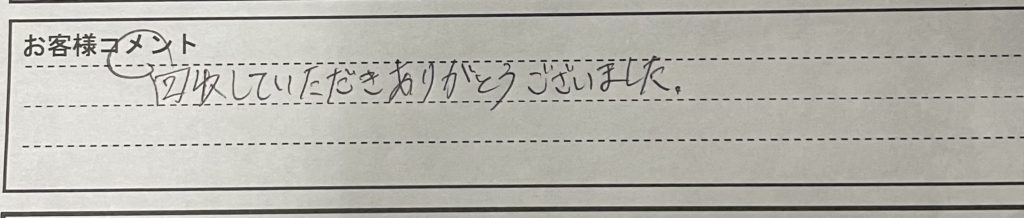 お客様コメント
回収していただきありがとうございました.